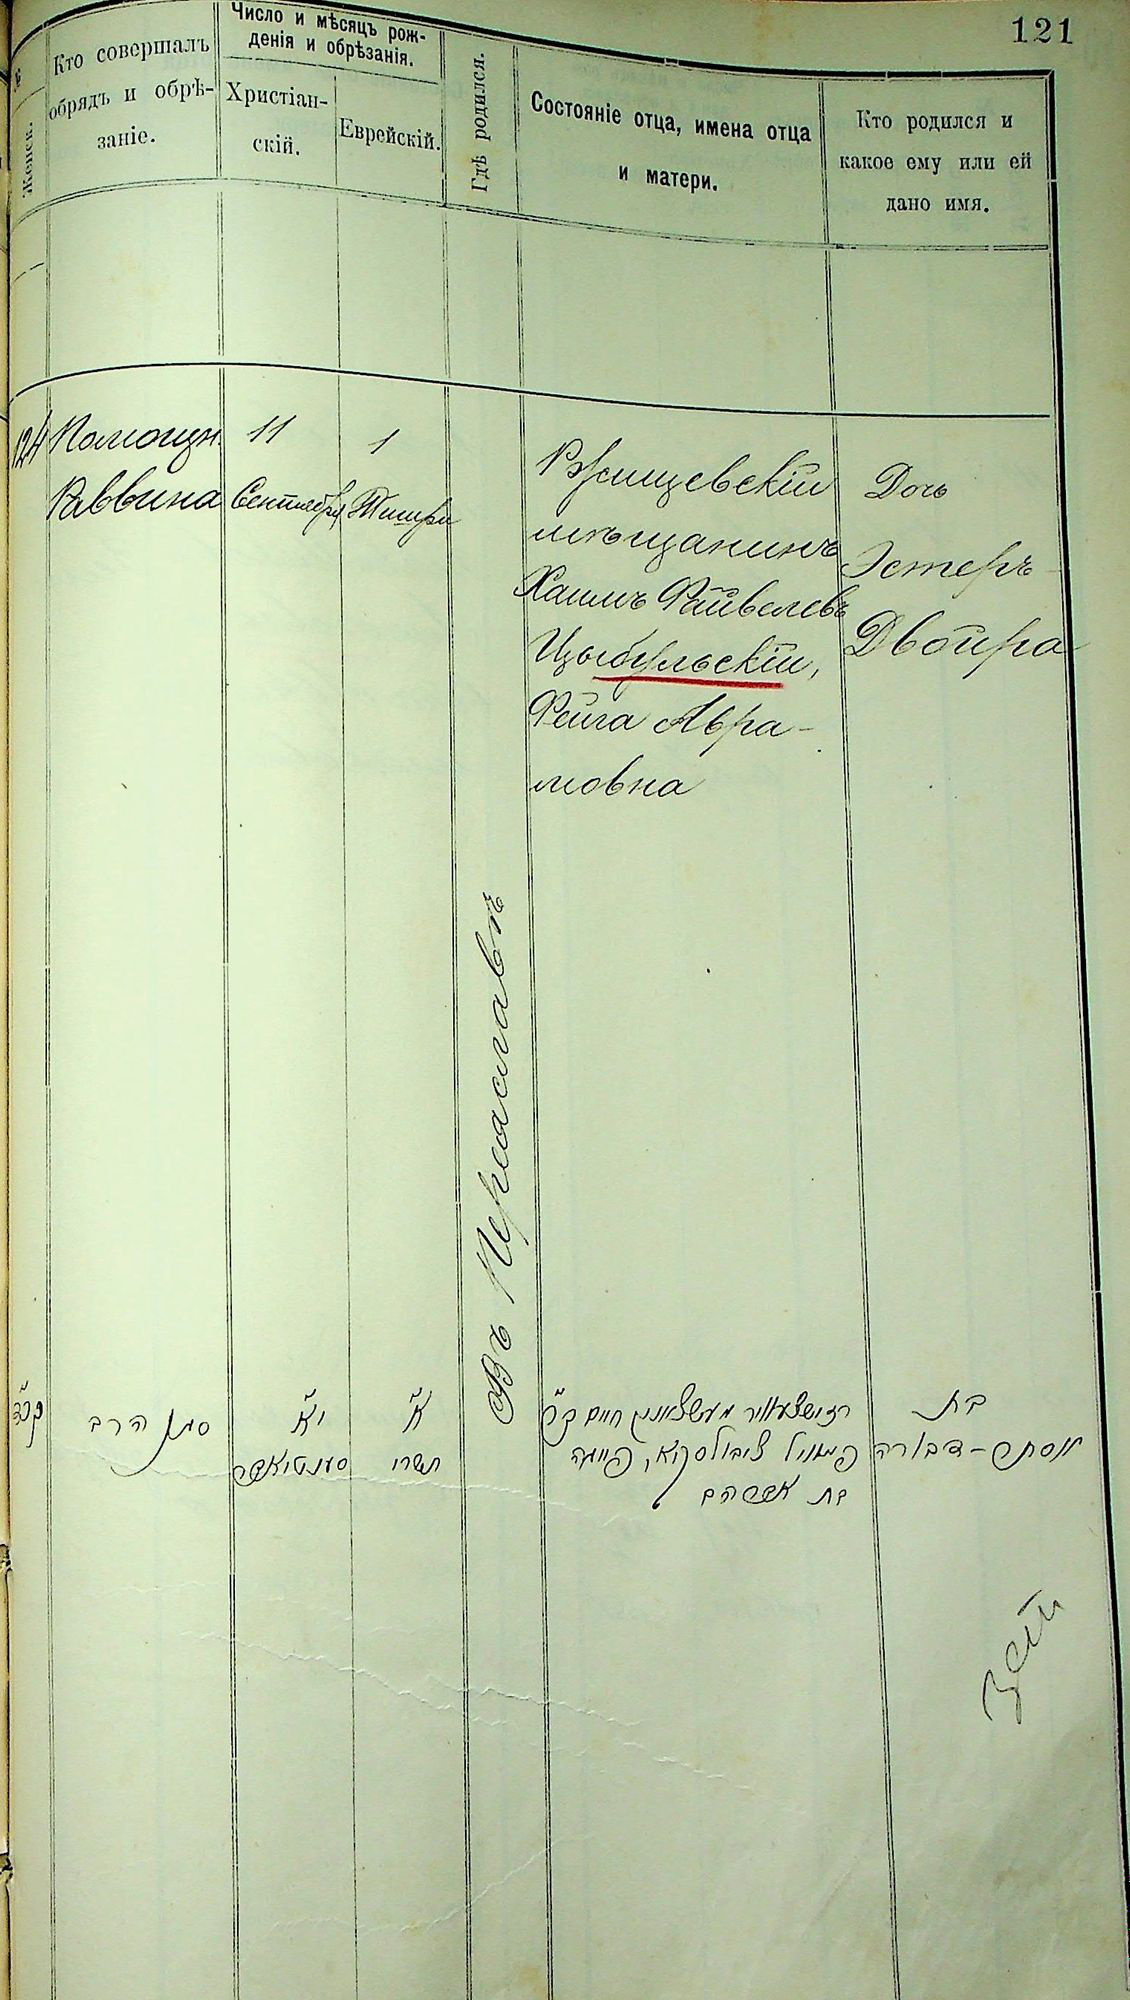 121
Женск.
Кто совершалъ
обрядъ и обрѣ-
заніе.
Число и мѣсяцъ рож-
денія и обрѣзанія.
Христіан-
скій.
Еврейскій.
Гдѣ родился.
Состояніе отца, имена отца
и матери.
Кто родился и
какое ему или ей
дано имя.
124
Помощн.
Раввина
11
Сентября
1
Тишри
Въ Переяславѣ
Ржищевскій
мѣщанинъ
Хаимъ Файвелевъ
Цыбульскій,
Фейга Авра-
мовна
Дочь
Эстеръ
Двойра
קכ״ד
סגן הרב
י״א
סענטיאבר
א״
תשרי
חיים
ציבולסקי,
בת אברהם
בת
אסתר-דבורה